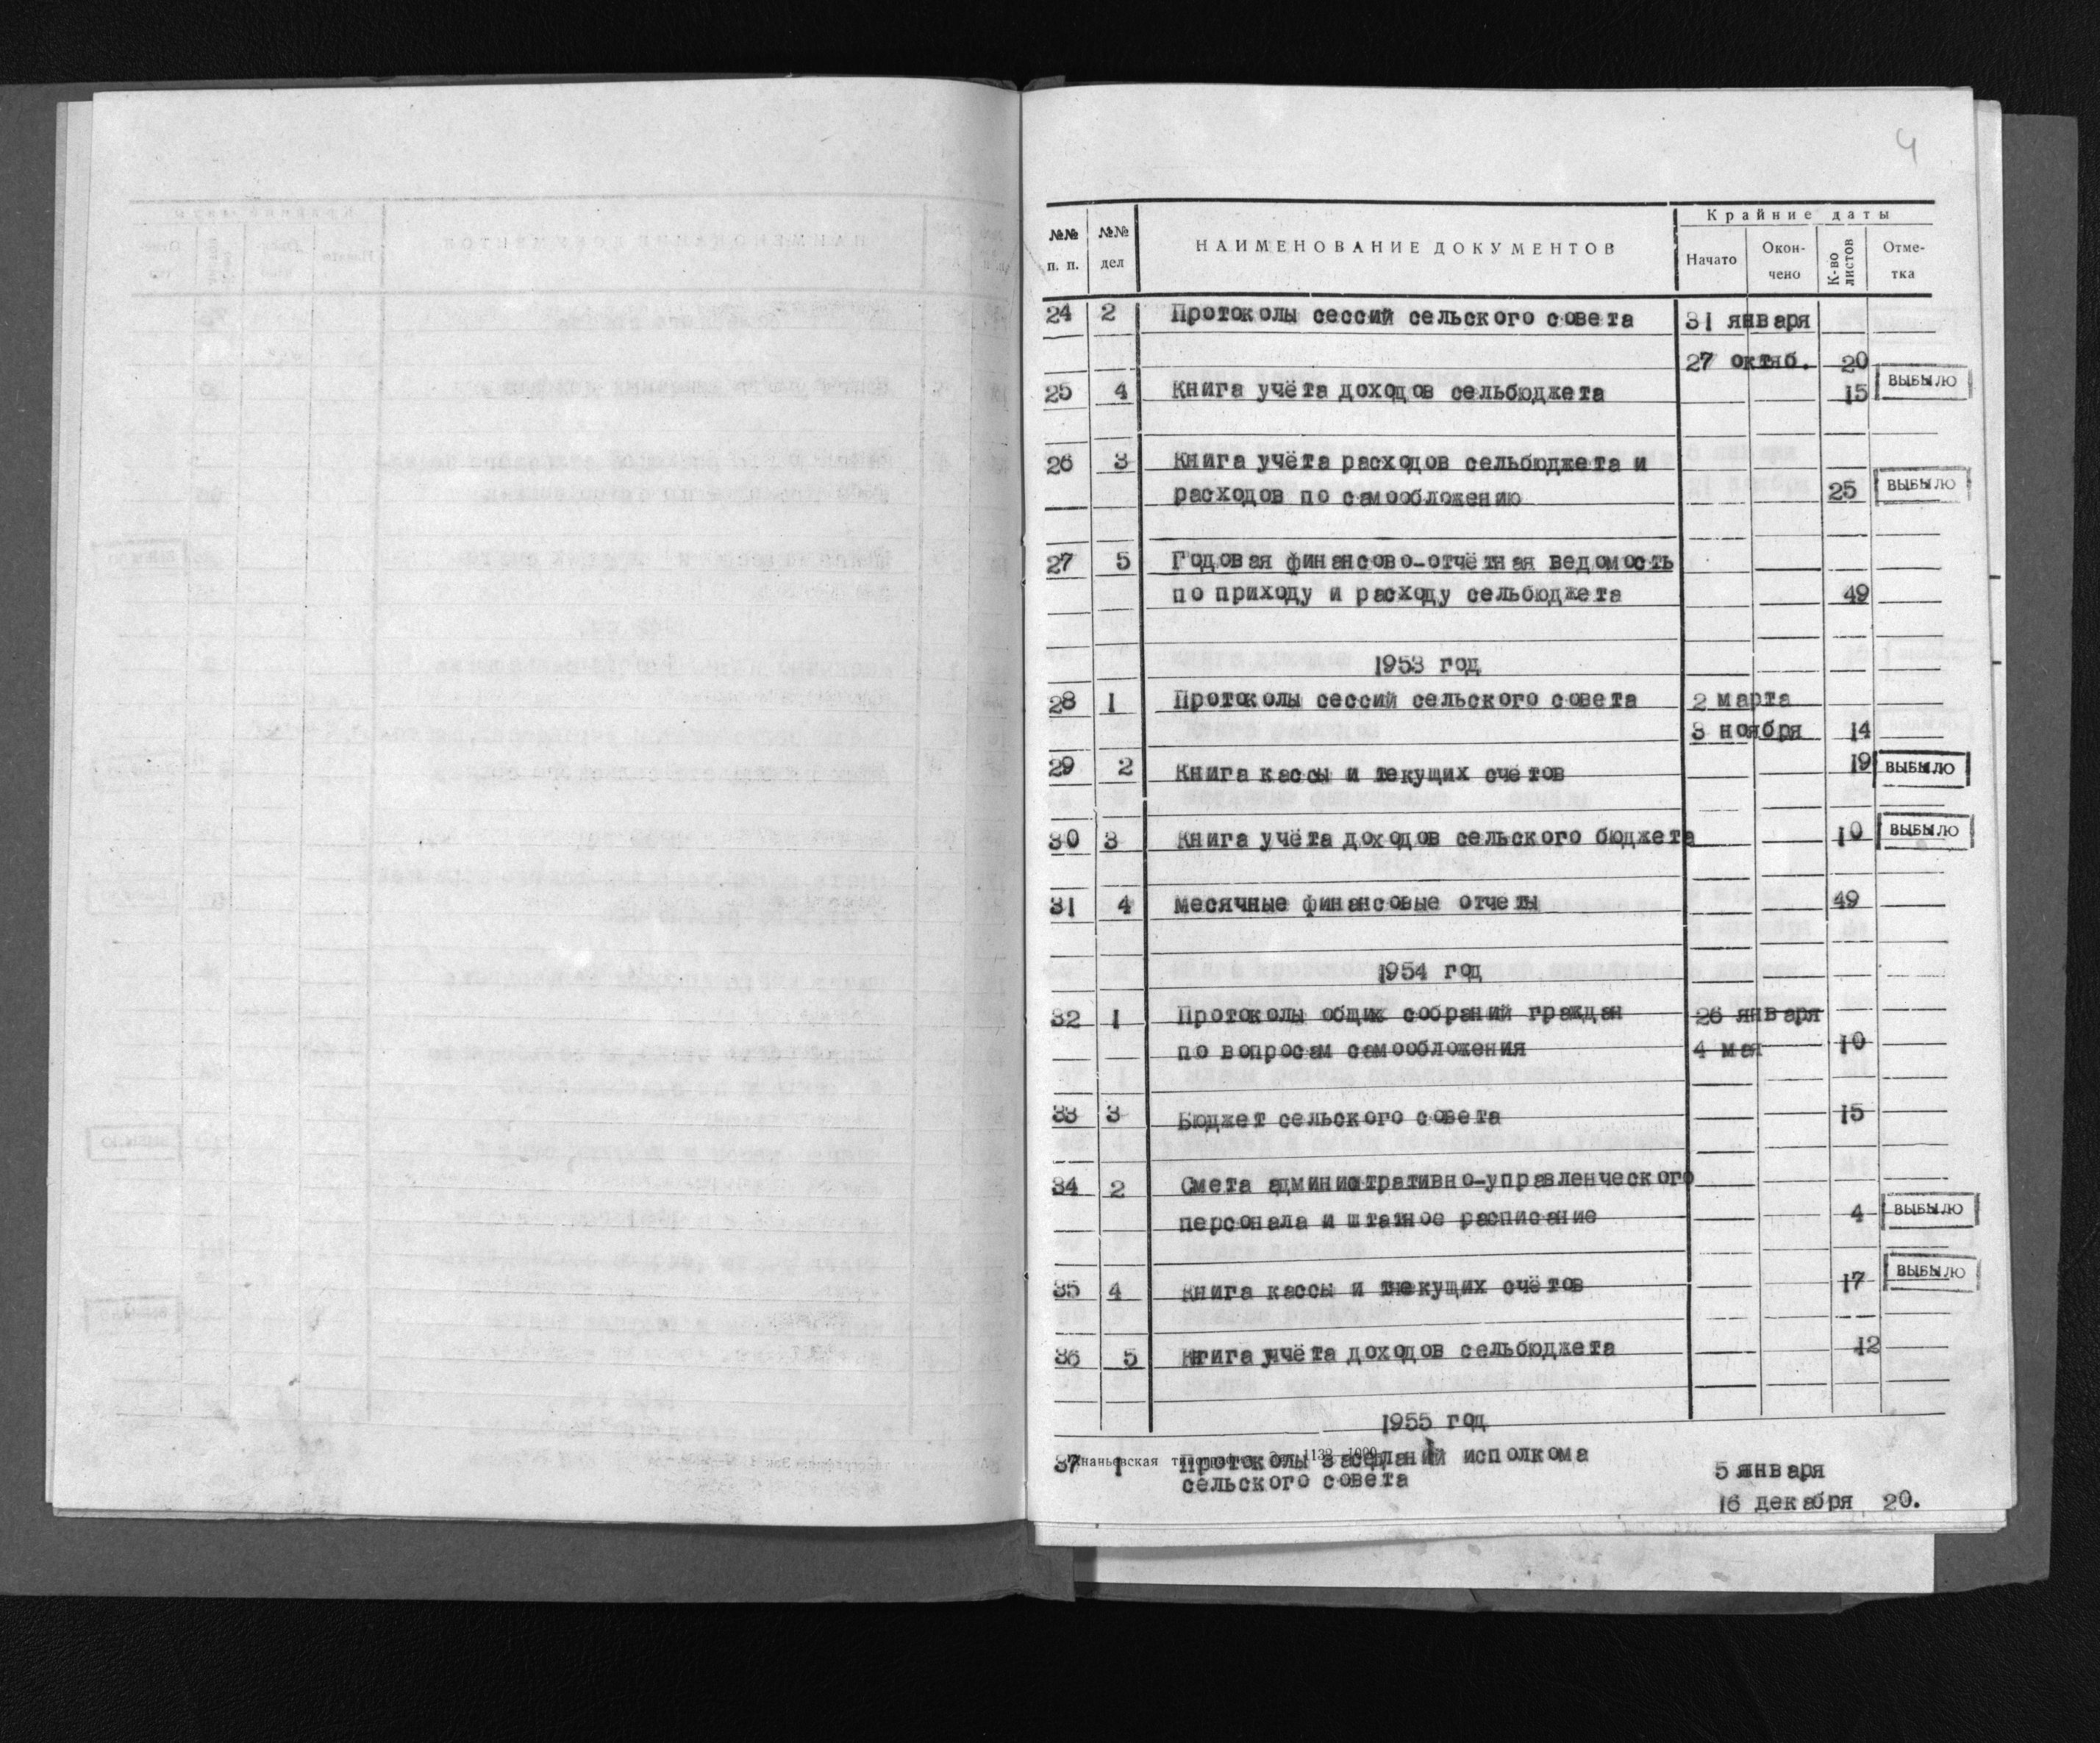 4
№№ п. п. №№ дел НАИМЕНОВАНИЕ ДОКУМЕНТОВ Крайние даты Начато Окончено К-во листов Отметка
24 2 Протоколы сессий сельского совета 31 января
27 октяб. 20
25 4 Книга учёта доходов сельбюджета 15 ВЫБЫЛО
26 3 Книга учёта расходов сельбюджета и
расходов по самообложению 25 ВЫБЫЛО
27 5 Годовая финансово-отчётная ведомость
по приходу и расходу сельбюджета 49
1953 год
28 1 Протоколы сессий сельского совета 2 марта
3 ноября 14
29 2 Книга кассы и текущих счётов 19 ВЫБЫЛО
30 3 Книга учёта доходов сельского бюджета 10 ВЫБЫЛО
31 4 месячные финансовые отчеты 49
1954 год
32 1 Протоколы общих собраний граждан 26 января
по вопросам самообложения 4 мая 10
33 3 Бюджет сельского совета 15
34 2 Смета административно-управленческого
персонала и штатное расписание 4 ВЫБЫЛО
35 4 Книга кассы и текущих счётов 17 ВЫБЫЛО
36 5 Книга учёта доходов сельбюджета 12
1955 год
Ананьевская
37 1 Протоколы заседаний исполкома
сельского совета 5 января
16 декабря 20.